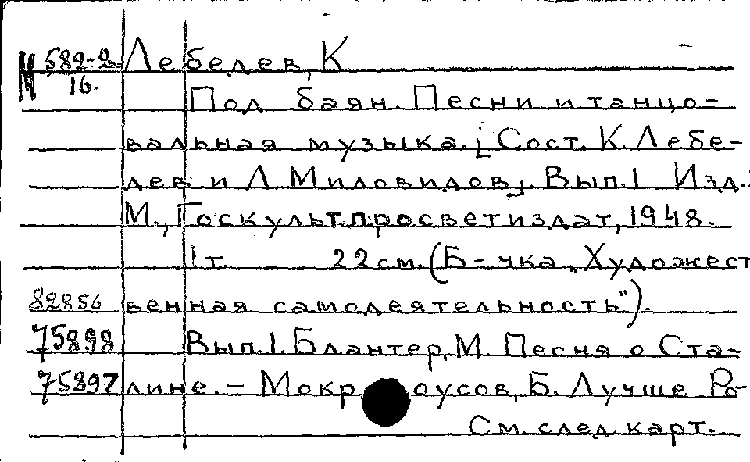 М 582-2 Лебедев, К
16.
Под баян. Песни и танцо-
вальная музыка. [Сост. К. Лебе-
дев и Л Миловидов]. Вып. 1 Изд.
М., Госкультпросветиздат, 1948.
1 т. 22 см. (Б-чка „Художест
82856 венная самодеятельность").
75898 Вып. 1. Блантер, М. Песня о Ста-
75897 лине. – Мокроусов, Б. Лучше Ро-
См. след. карт.